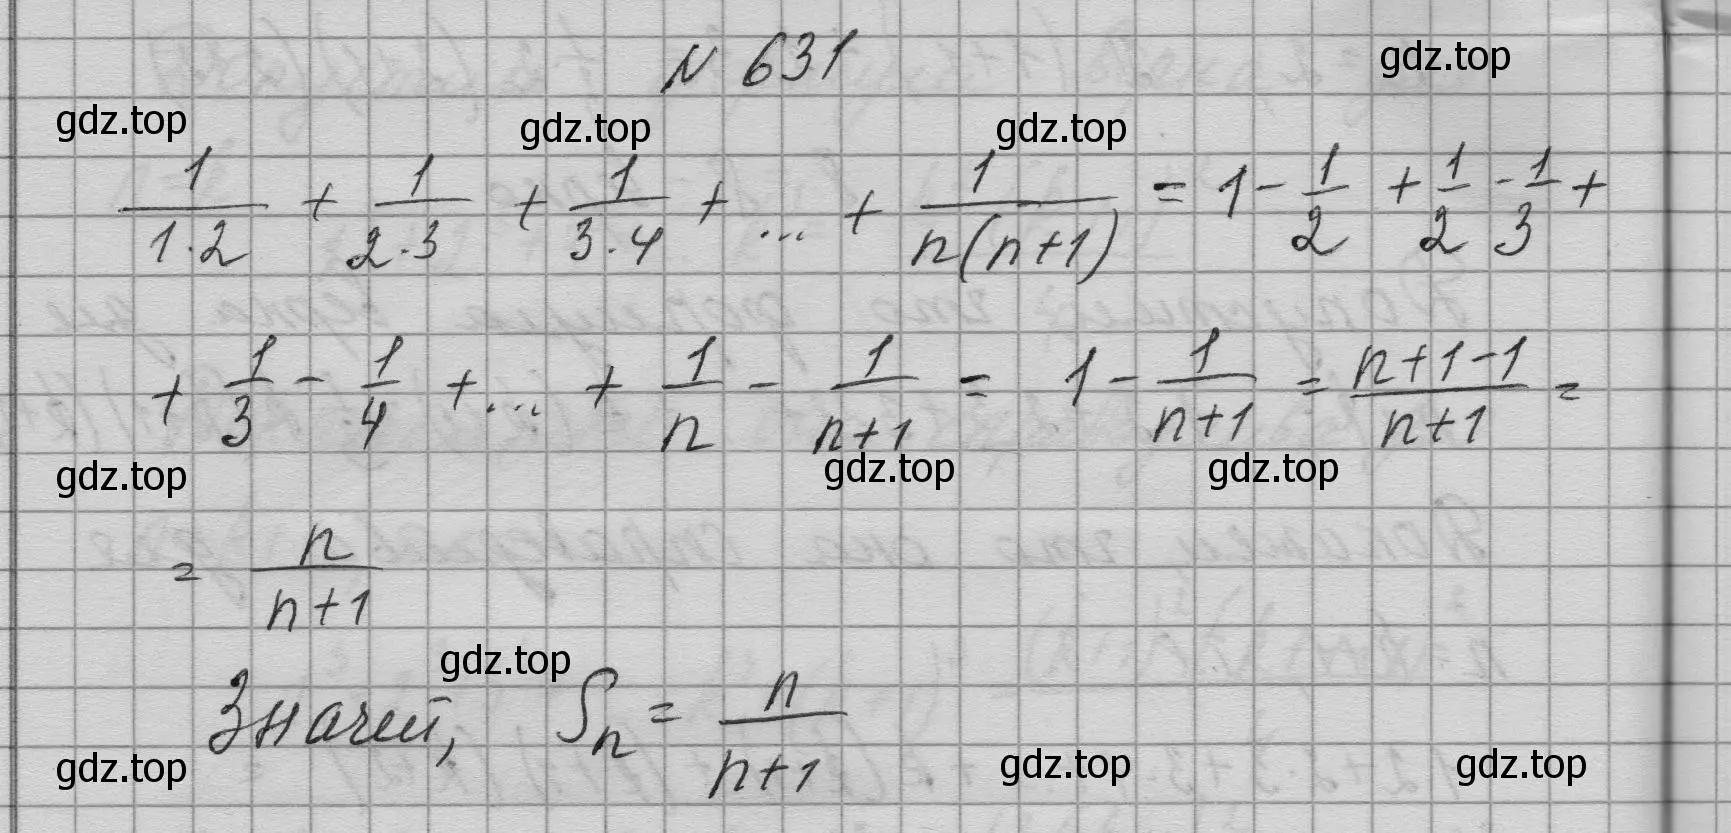 N 631
gdz.top
gdz.top gdz.top gdz.top
1/(1·2) + 1/(2·3) + 1/(3·4) + ... + 1/(n(n+1)) = 1 - 1/2 + 1/2 - 1/3 +
+ 1/3 - 1/4 + ... + 1/n - 1/(n+1) = 1 - 1/(n+1) = (n+1-1)/(n+1) =
gdz.top gdz.top gdz.top
= n/(n+1)
gdz.top
Значит, Sn = n/(n+1)
gdz.top gdz.top gdz.top